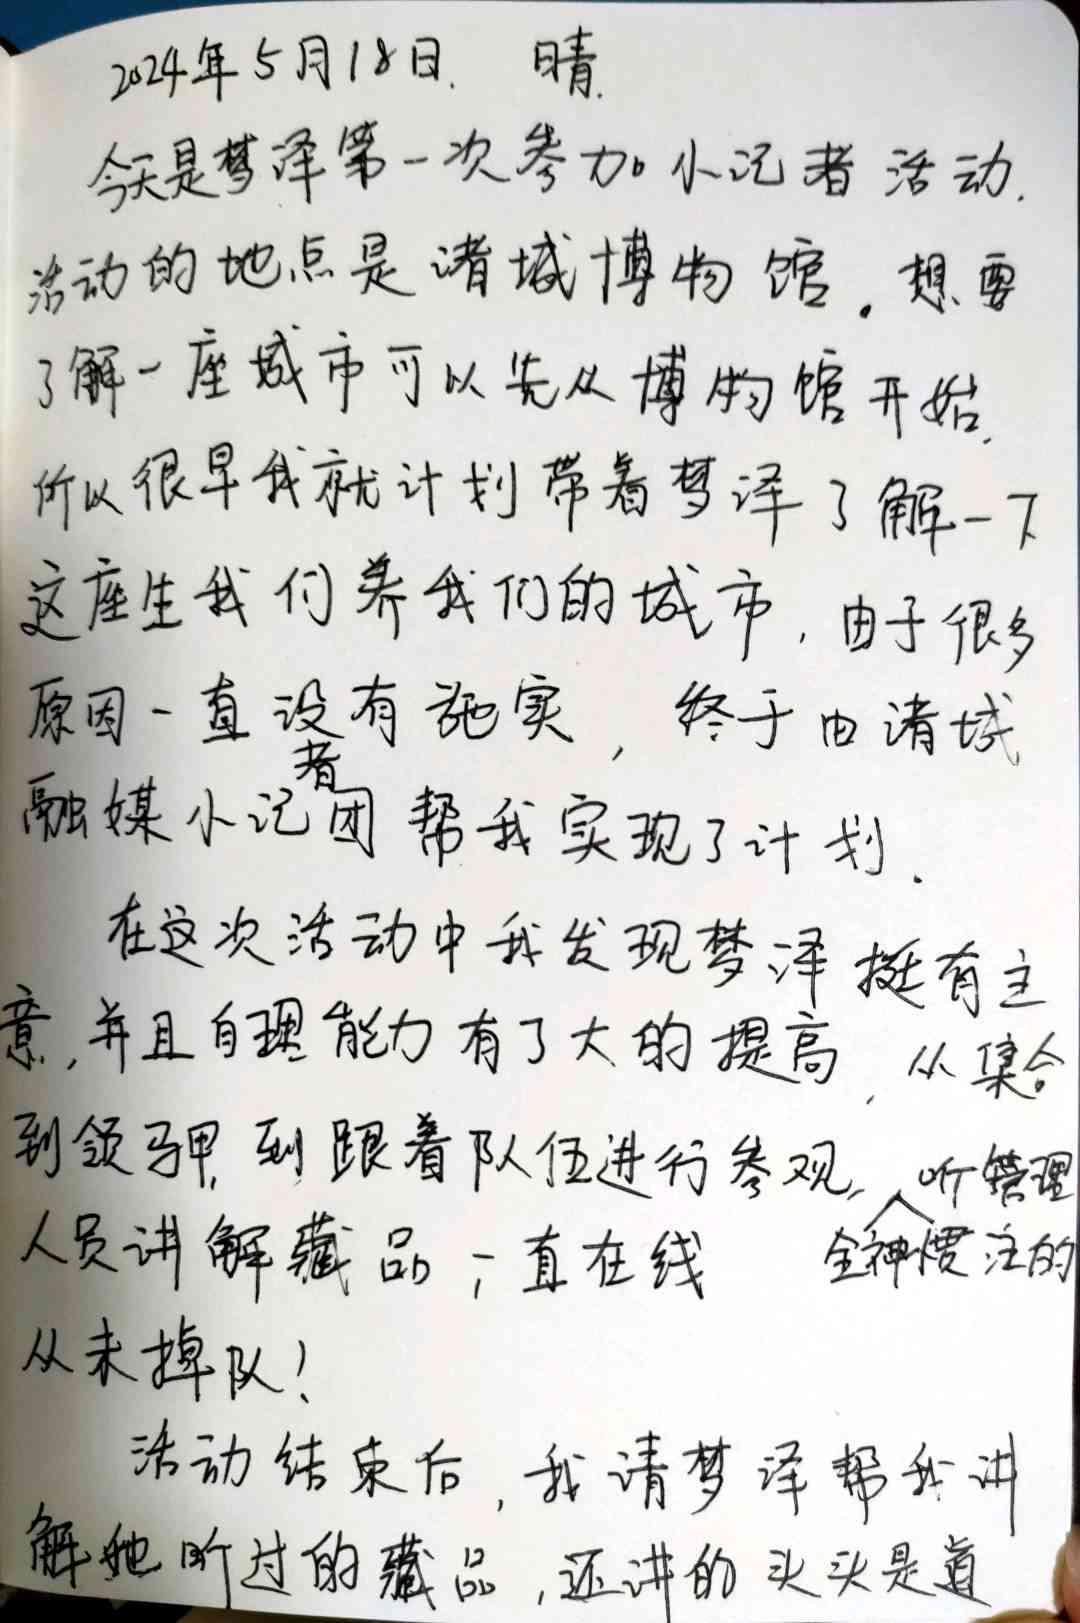 2024年5月18日. 晴.
今天是梦泽第一次参加小记者活动.
活动的地点是诸城博物馆。想要
了解一座城市可以先从博物馆开始.
所以很早我就计划带着梦泽了解一下
这座生我们养我们的城市,由于很多
原因一直没有施实,终于由诸城
融媒小记者团帮我实现了计划.
在这次活动中我发现梦泽挺有主
意,并且自理能力有了大的提高,从集合
到领马甲,到跟着队伍进行参观,全神惯注的听管理
人员讲解藏品,一直在线
从未掉队!
活动结束后,我请梦泽帮我讲
解她听过的藏品,还讲的头头是道